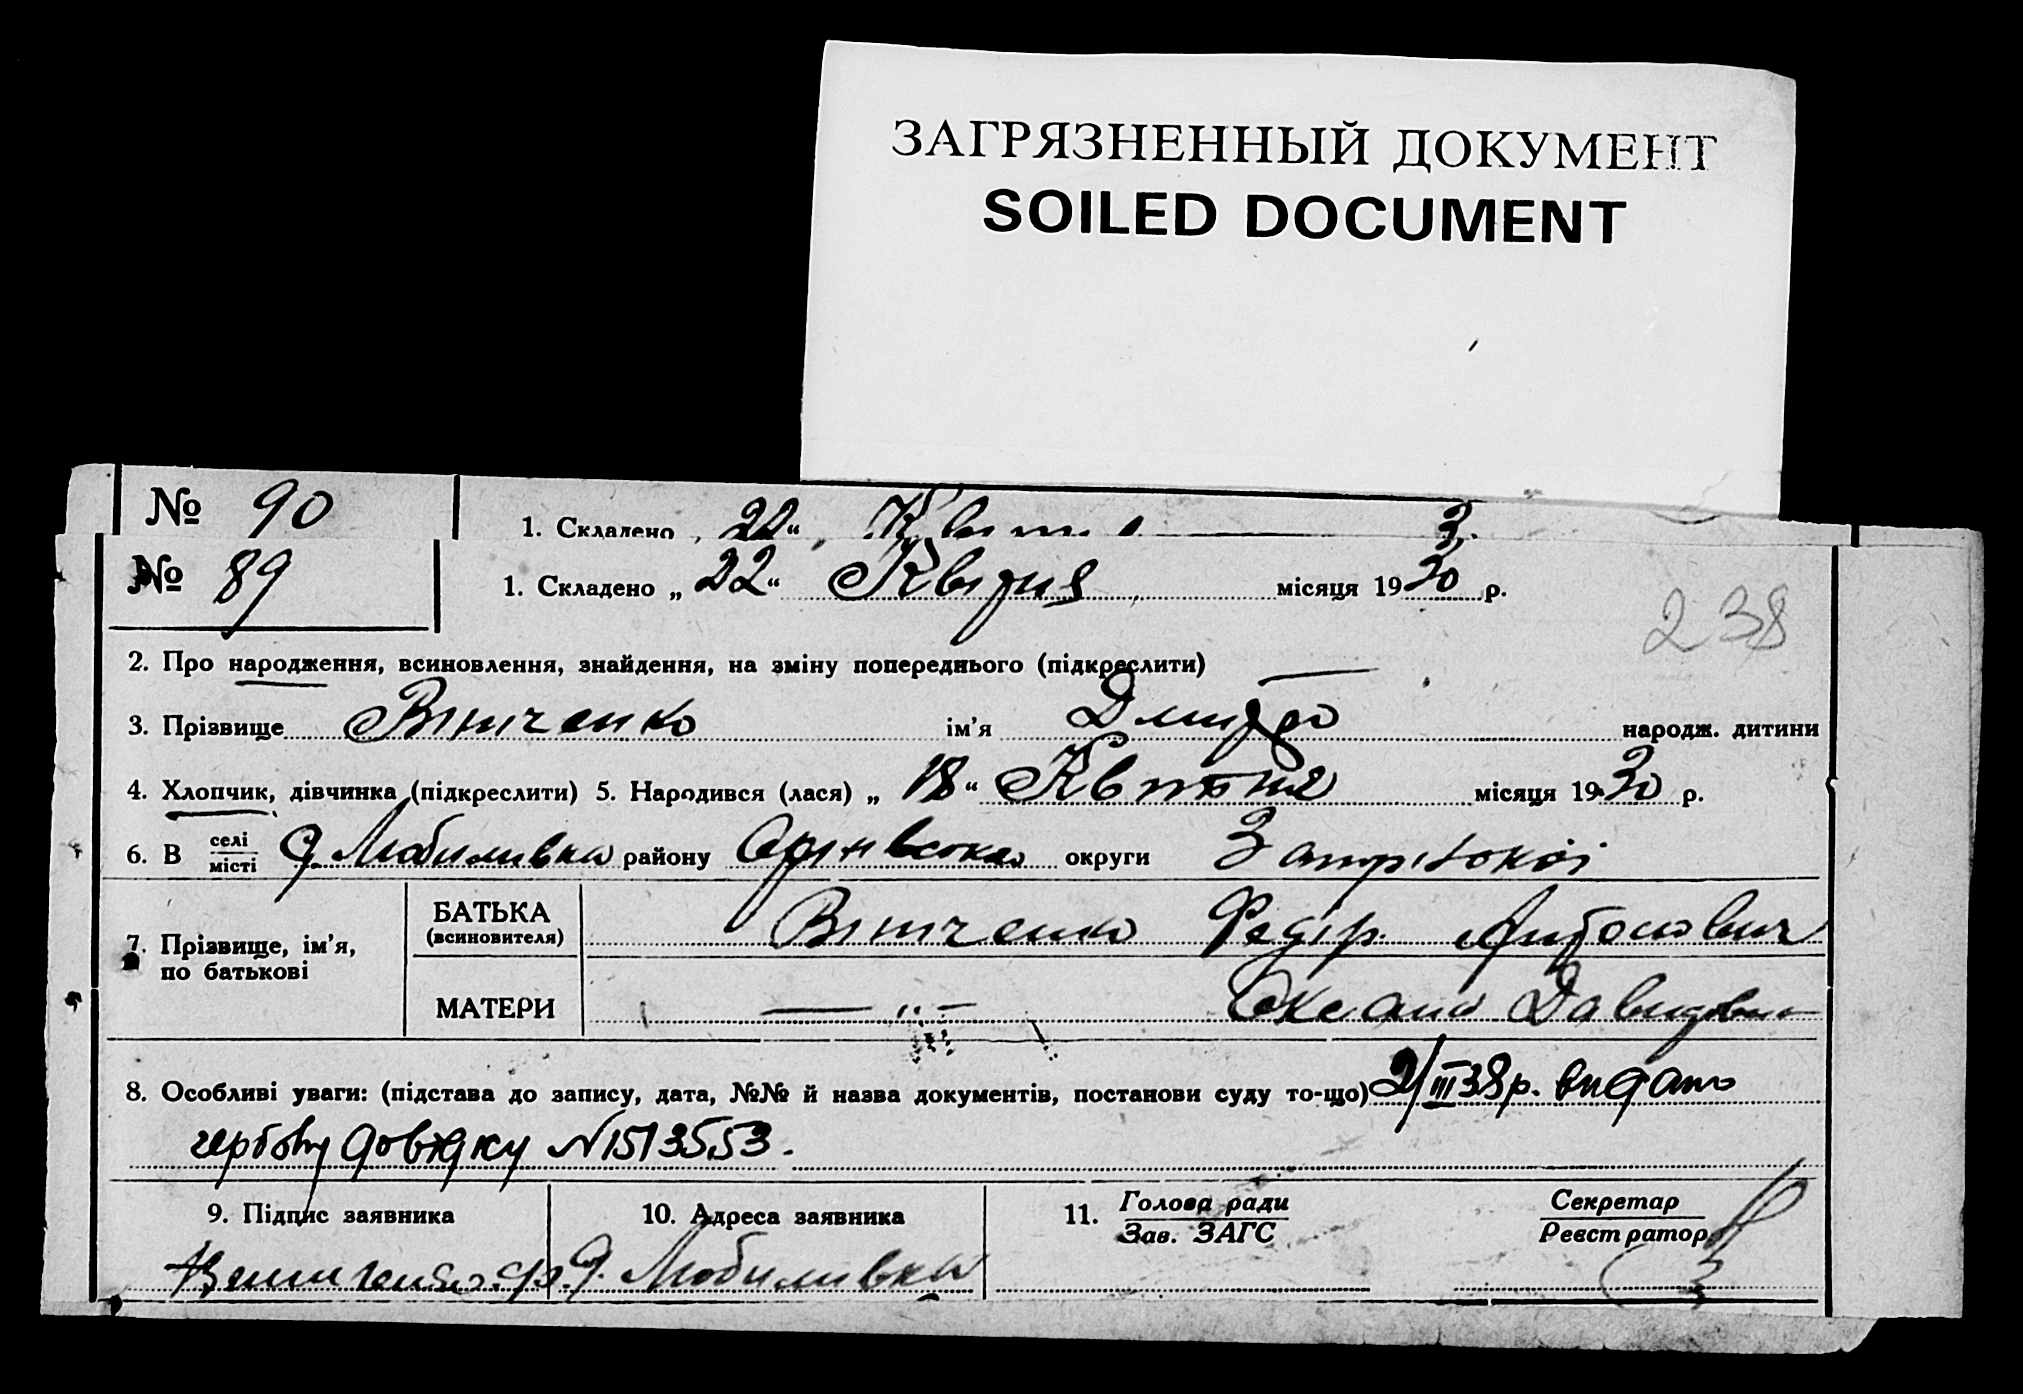 ЗАГРЯЗНЕННЫЙ ДОКУМЕНТ
SOILED DOCUMENT
№ 90
1. Складено „ 22 “ 3
№ 89
1. Складено „ 22 “ Квітня місяця 1930 р.
238
2. Про народження, всиновлення, знайдення, на зміну попереднього (підкреслити) —
3. Прізвище Вінтченко ім’я Дмитро народж. дитини
4. Хлопчик, дівчинка (підкреслити) 5. Народився (лася) „ 18 “ Квітня місяця 1930 р.
6. В селі/місті С. Любимивка району округи Запорізької
7. Прізвище, ім’я, по батькові
БАТЬКА (всиновителя) Вінтченко Федір Антонович
МАТЕРИ — „ — Оксана Давидовна
8. Особливі уваги: (підстава до запису, дата, №№ й назва документів, постанови суду то-що) 2/III 38 р. видано
гербову довідку N 1513553.
9. Підпис заявника 10. Адреса заявника 11. Голова ради / Зав. ЗАГС Секретар / Реєстратор
С. Любимивка